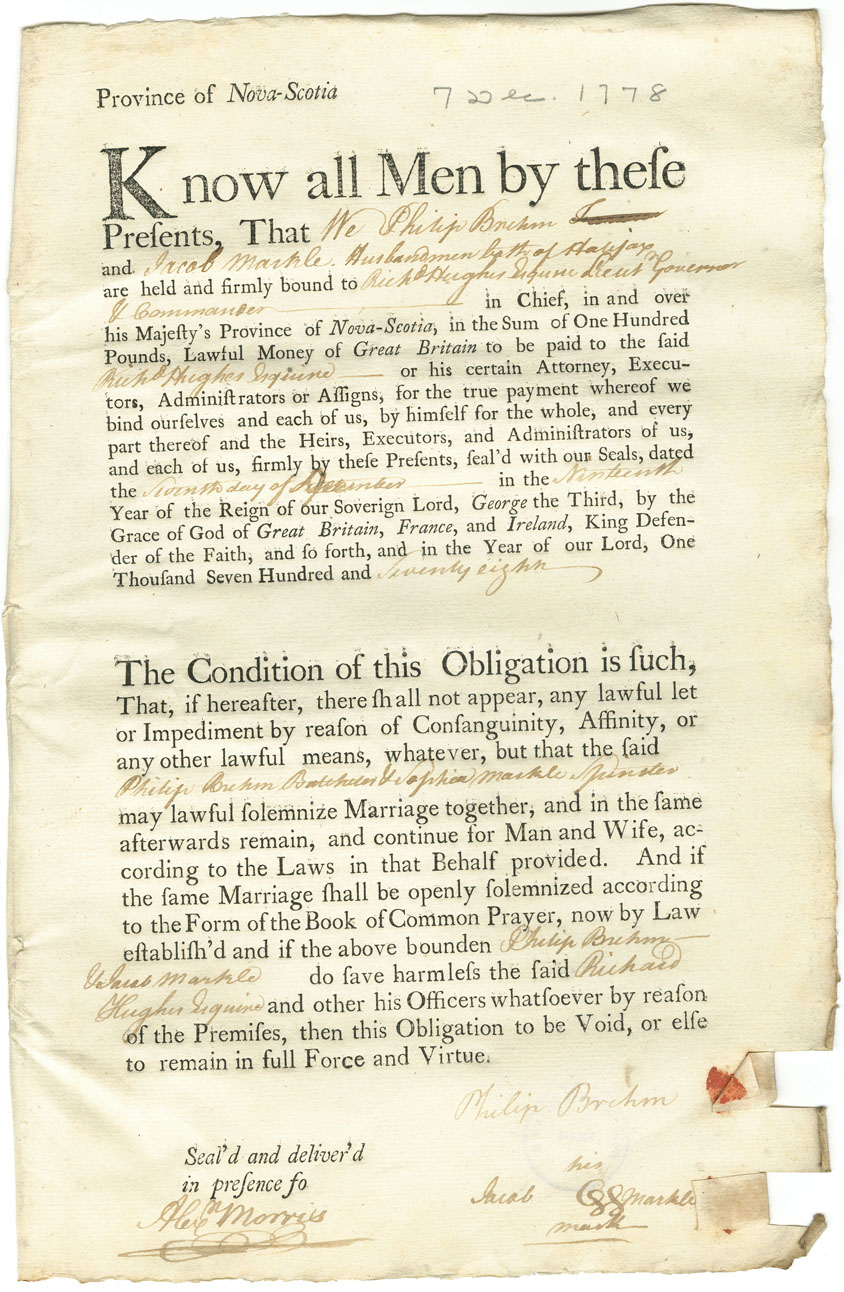 Province of Nova-Scotia
7 Dec. 1778
Know all Men by theſe
Preſents, That We Philip Brehm
and Jacob Markle Husbandmen both of Halifax
are held and firmly bound to Richd Hughes Esquire Lieut Governor
& Commander in Chief, in and over
his Majeſty's Province of Nova-Scotia, in the Sum of One Hundred
Pounds, Lawful Money of Great Britain to be paid to the ſaid
Richd Hughes Esquire or his certain Attorney, Execu-
tors, Adminiſtrators or Aſſigns, for the true payment whereof we
bind ourſelves and each of us, by himſelf for the whole, and every
part thereof and the Heirs, Executors, and Adminiſtrators of us,
and each of us, firmly by theſe Preſents, ſeal'd with our Seals, dated
the Seventh day of December in the Ninteenth
Year of the Reign of our Soverign Lord, George the Third, by the
Grace of God of Great Britain, France, and Ireland, King Defen-
der of the Faith, and ſo forth, and in the Year of our Lord, One
Thouſand Seven Hundred and Seventy eight
The Condition of this Obligation is ſuch,
That, if hereafter, there ſhall not appear, any lawful let
or Impediment by reaſon of Conſanguinity, Affinity, or
any other lawful means, whatever, but that the ſaid
Philip Brehm Batcheler & Sophia Markle Spinster
may lawful ſolemnize Marriage together, and in the ſame
afterwards remain, and continue for Man and Wife, ac-
cording to the Laws in that Behalf provided. And if
the ſame Marriage ſhall be openly ſolemnized according
to the Form of the Book of Common Prayer, now by Law
eſtabliſh'd and if the above bounden Philip Brehm
& Jacob Markle do ſave harmleſs the ſaid Richard
Hughes Esquire and other his Officers whatſoever by reaſon
of the Premiſes, then this Obligation to be Void, or elſe
to remain in full Force and Virtue.
Philip Brehm
Seal'd and deliver'd
in preſence fo
his
Jacob Markle
mark
Alexr Morris